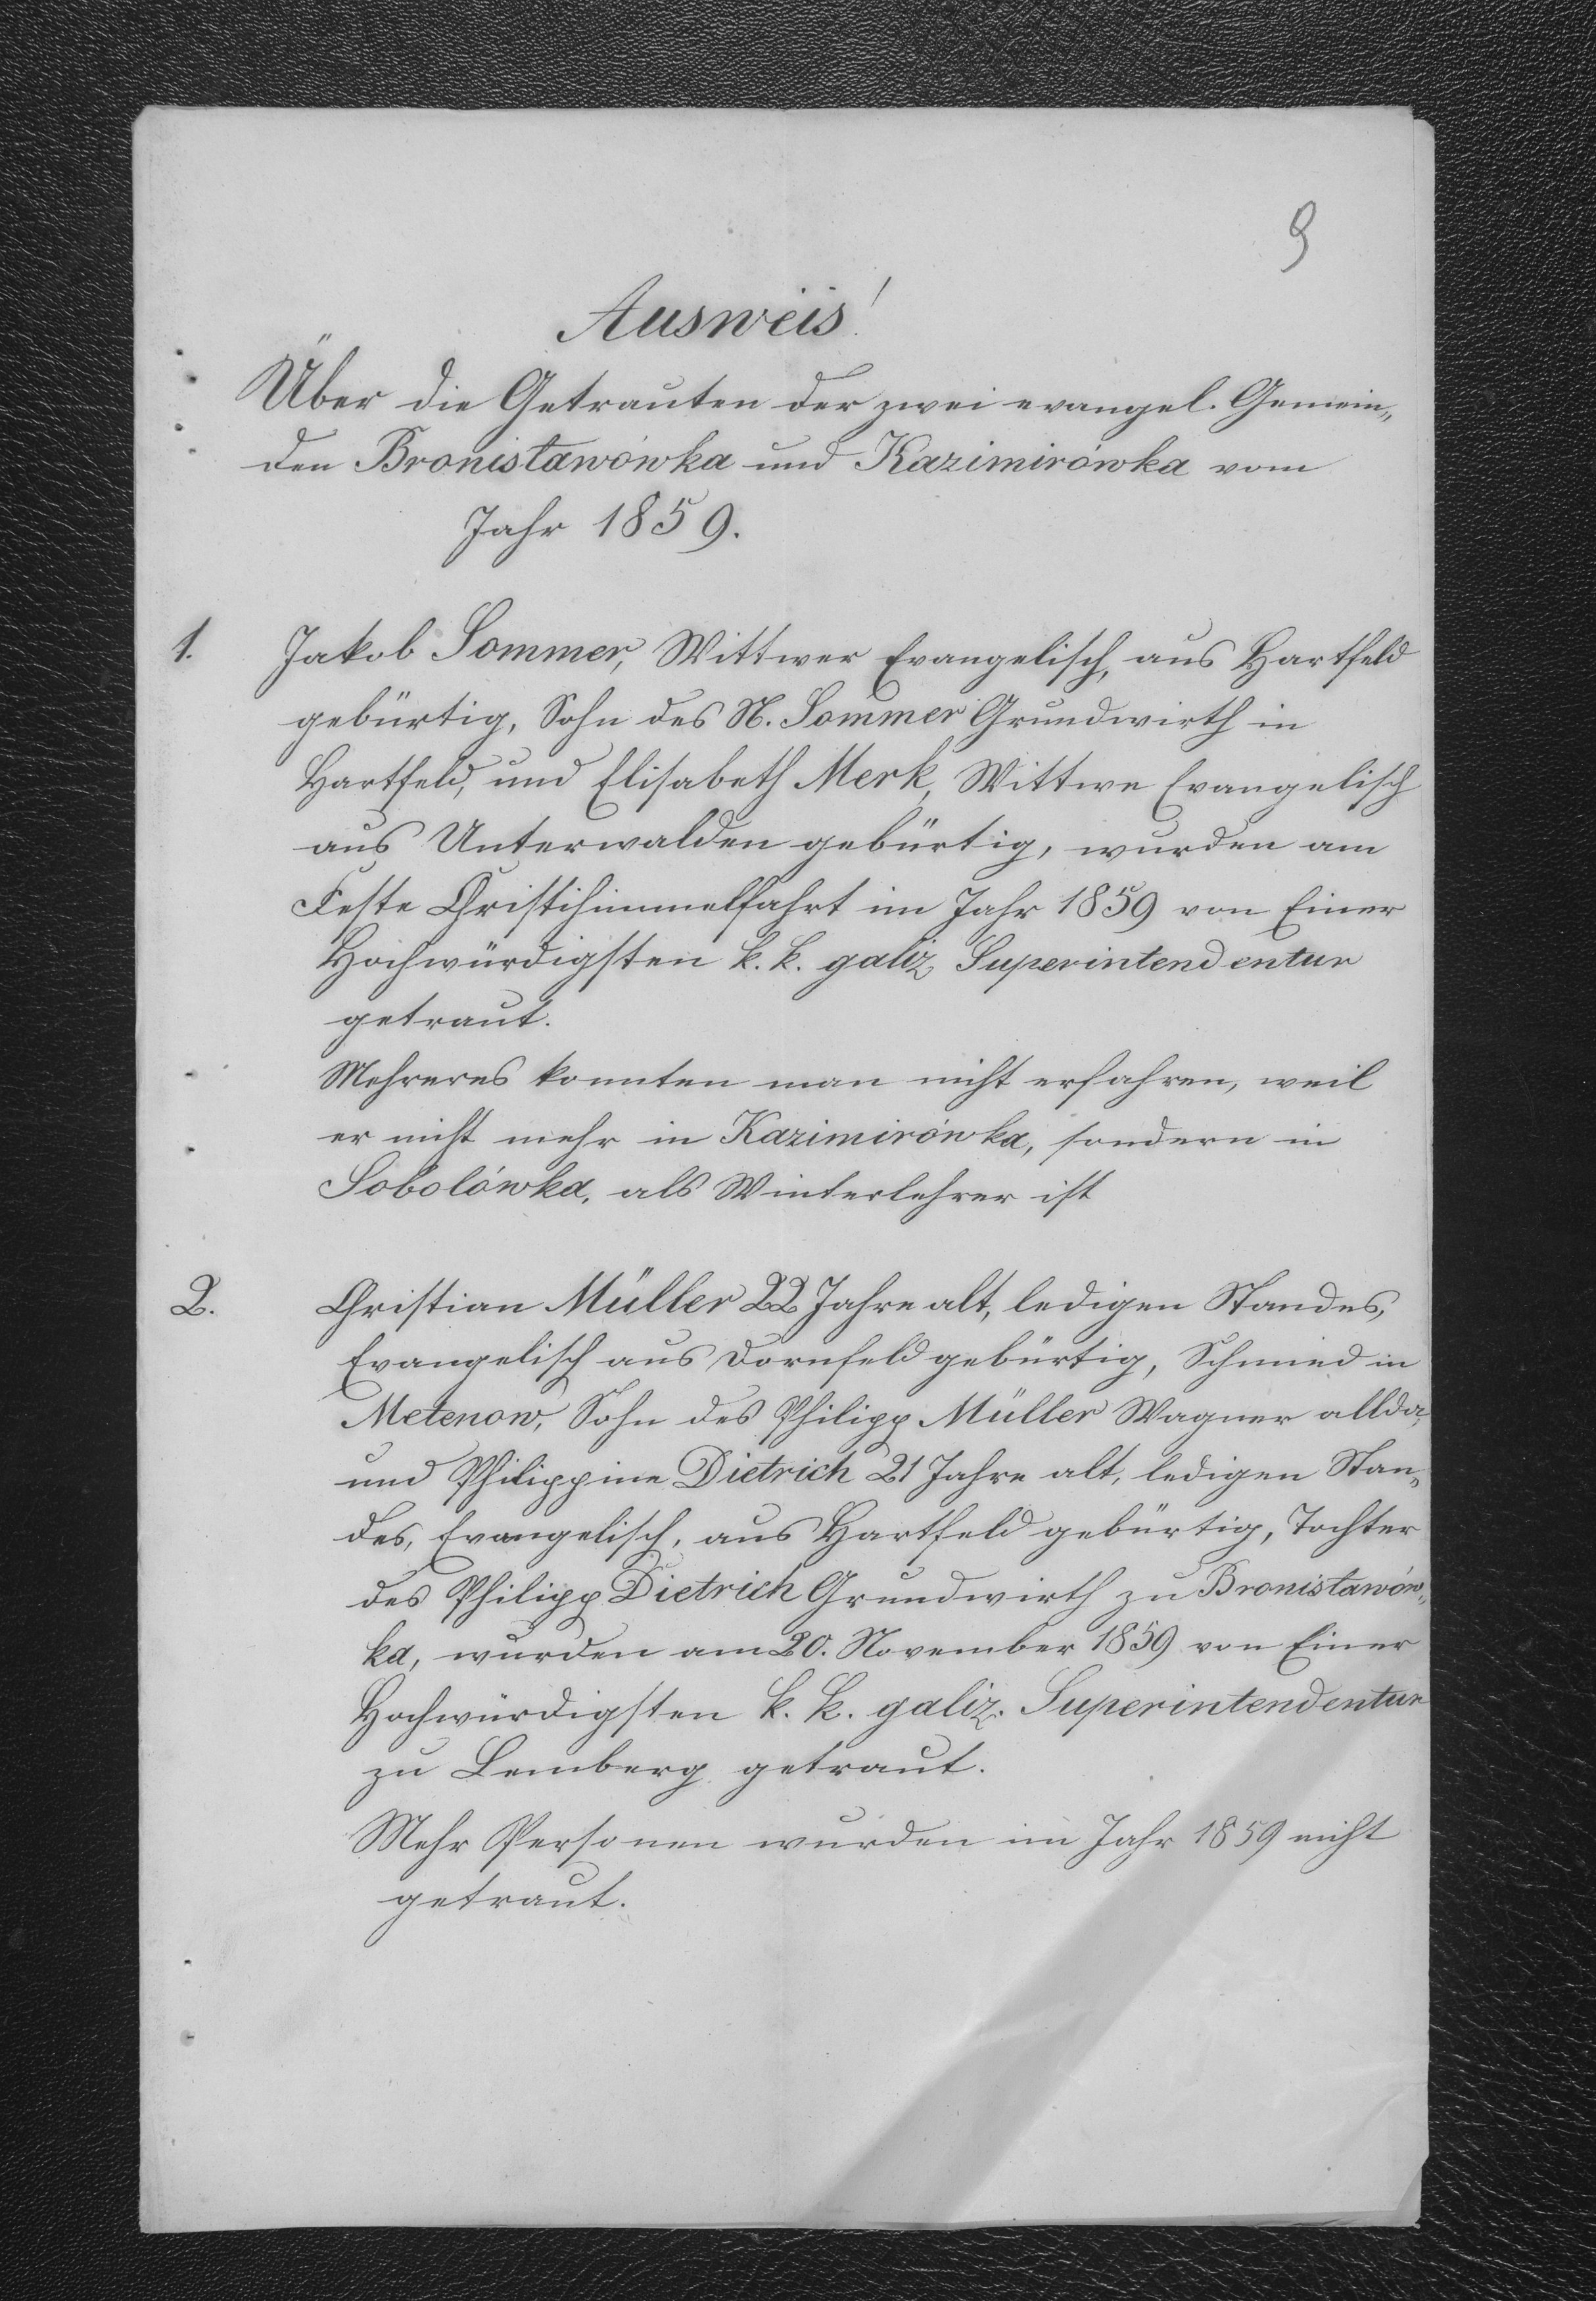 9
Ausweis!
Über die Getrauten der zwei evangel. Gemein„
den Bronisławówka und Kazimirówka vom
Jahr 1859.
1. Jakob Sommer, Wittwer Evangelisch, aus Hartfeld
gebürtig, Sohn des N. Sommer Grundwirth in
Hartfeld, und Elisabeth Merk, Wittwe Evangelisch
aus Unterwalden gebürtig, wurden am
Feste Christihimmelfahrt im Jahr 1859 von Einer
Hochwürdigsten k. k. galiz. Superintendentur
getraut.
Mehreres konnten man nicht erfahren, weil
er nicht mehr in Kazimirówka, sondern in
Sobolówka, als Winterlehrer ist
2. Christian Müller 22 Jahre alt, ledigen Standes,
Evangelisch aus Dornfeld gebürtig, Schmied in
Metenow, Sohn des Philipp Müller Wagner allda,
und Philippine Dietrich 21 Jahre alt, ledigen Stan„
des, Evangelisch, aus Hartfeld gebürtig, Tochter
des Philipp Dietrich Grundwirth zu Bronisławów„
ka, wurden am 20. November 1859 von Einer
Hochwürdigsten k. k. galiz. Superintendentur
zu Lemberg getraut.
Mehr Personen wurden im Jahr 1859 nicht
getraut.